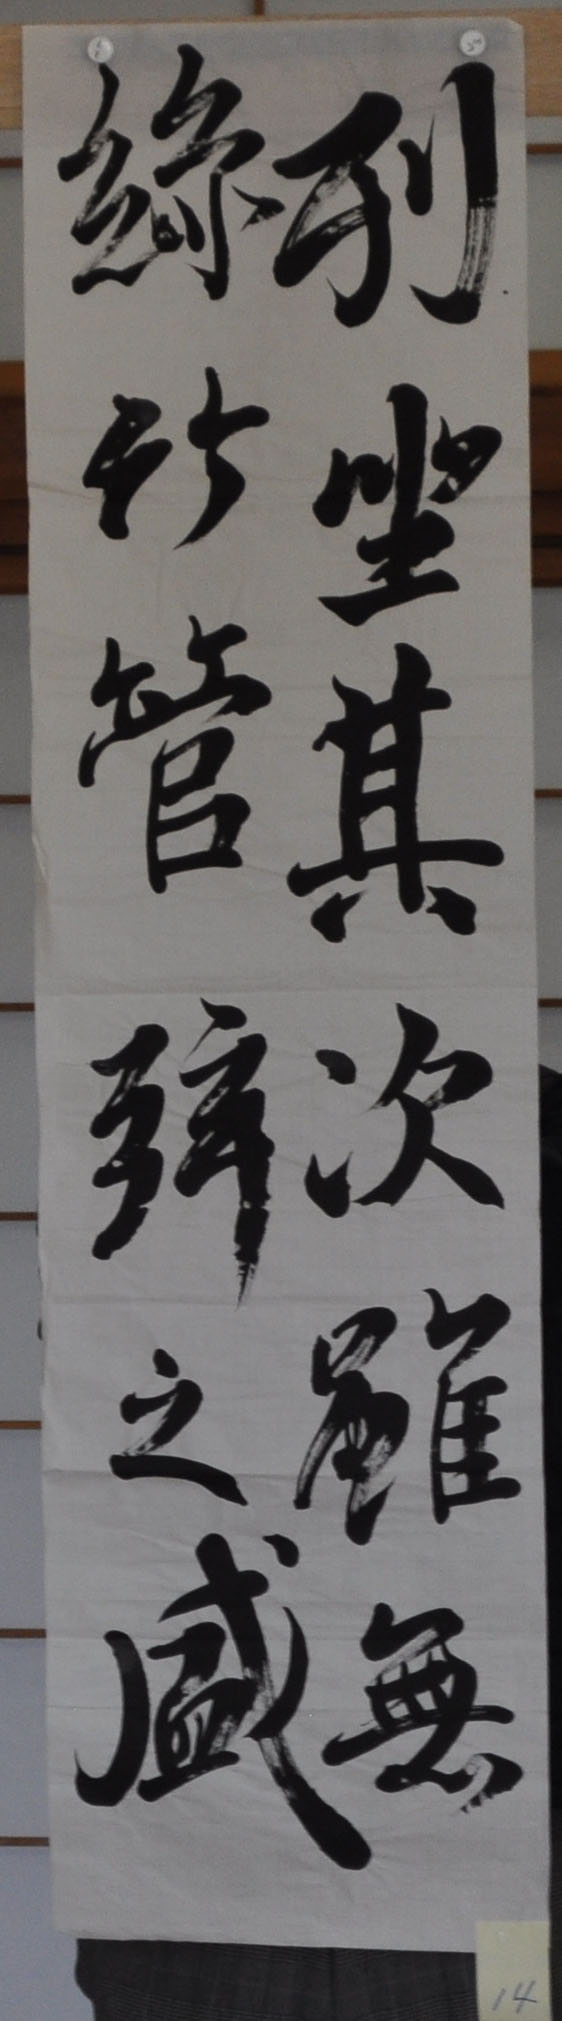 列坐其次雖無
絲竹管弦之盛
14